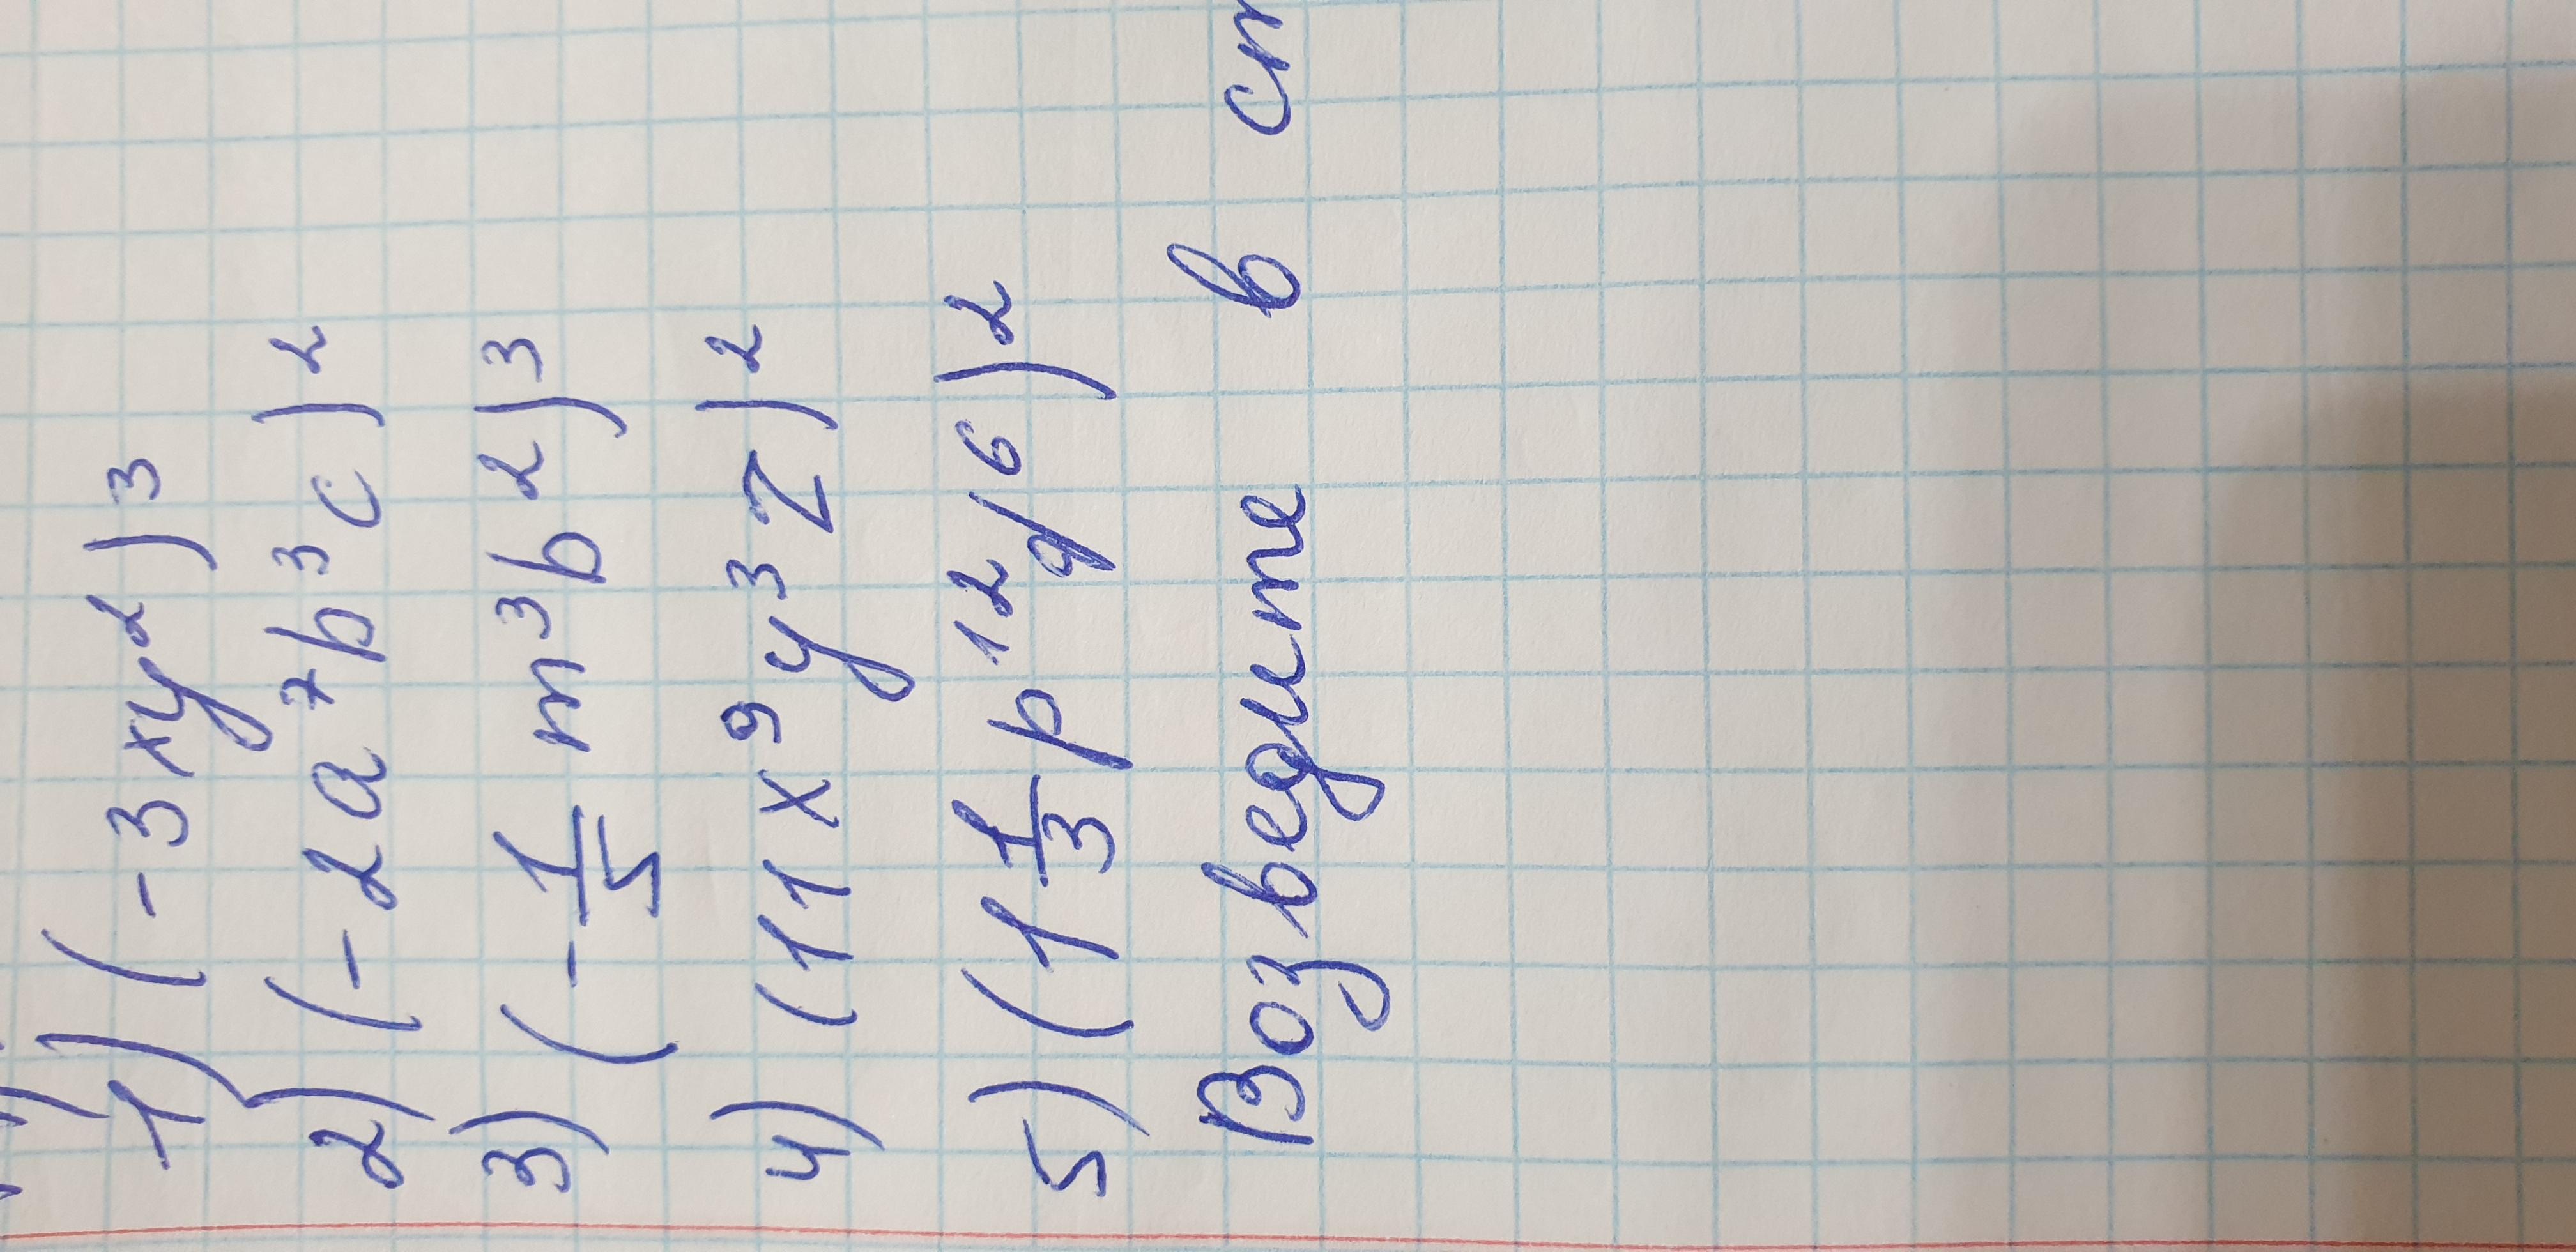 1) (-3xy²)³
2) (-2a⁷b³c)²
3) (-1/5 m³b²)³
4) (11x⁹y³z)²
5) (1 1/3 p¹²y⁶)²
Возведите в ст